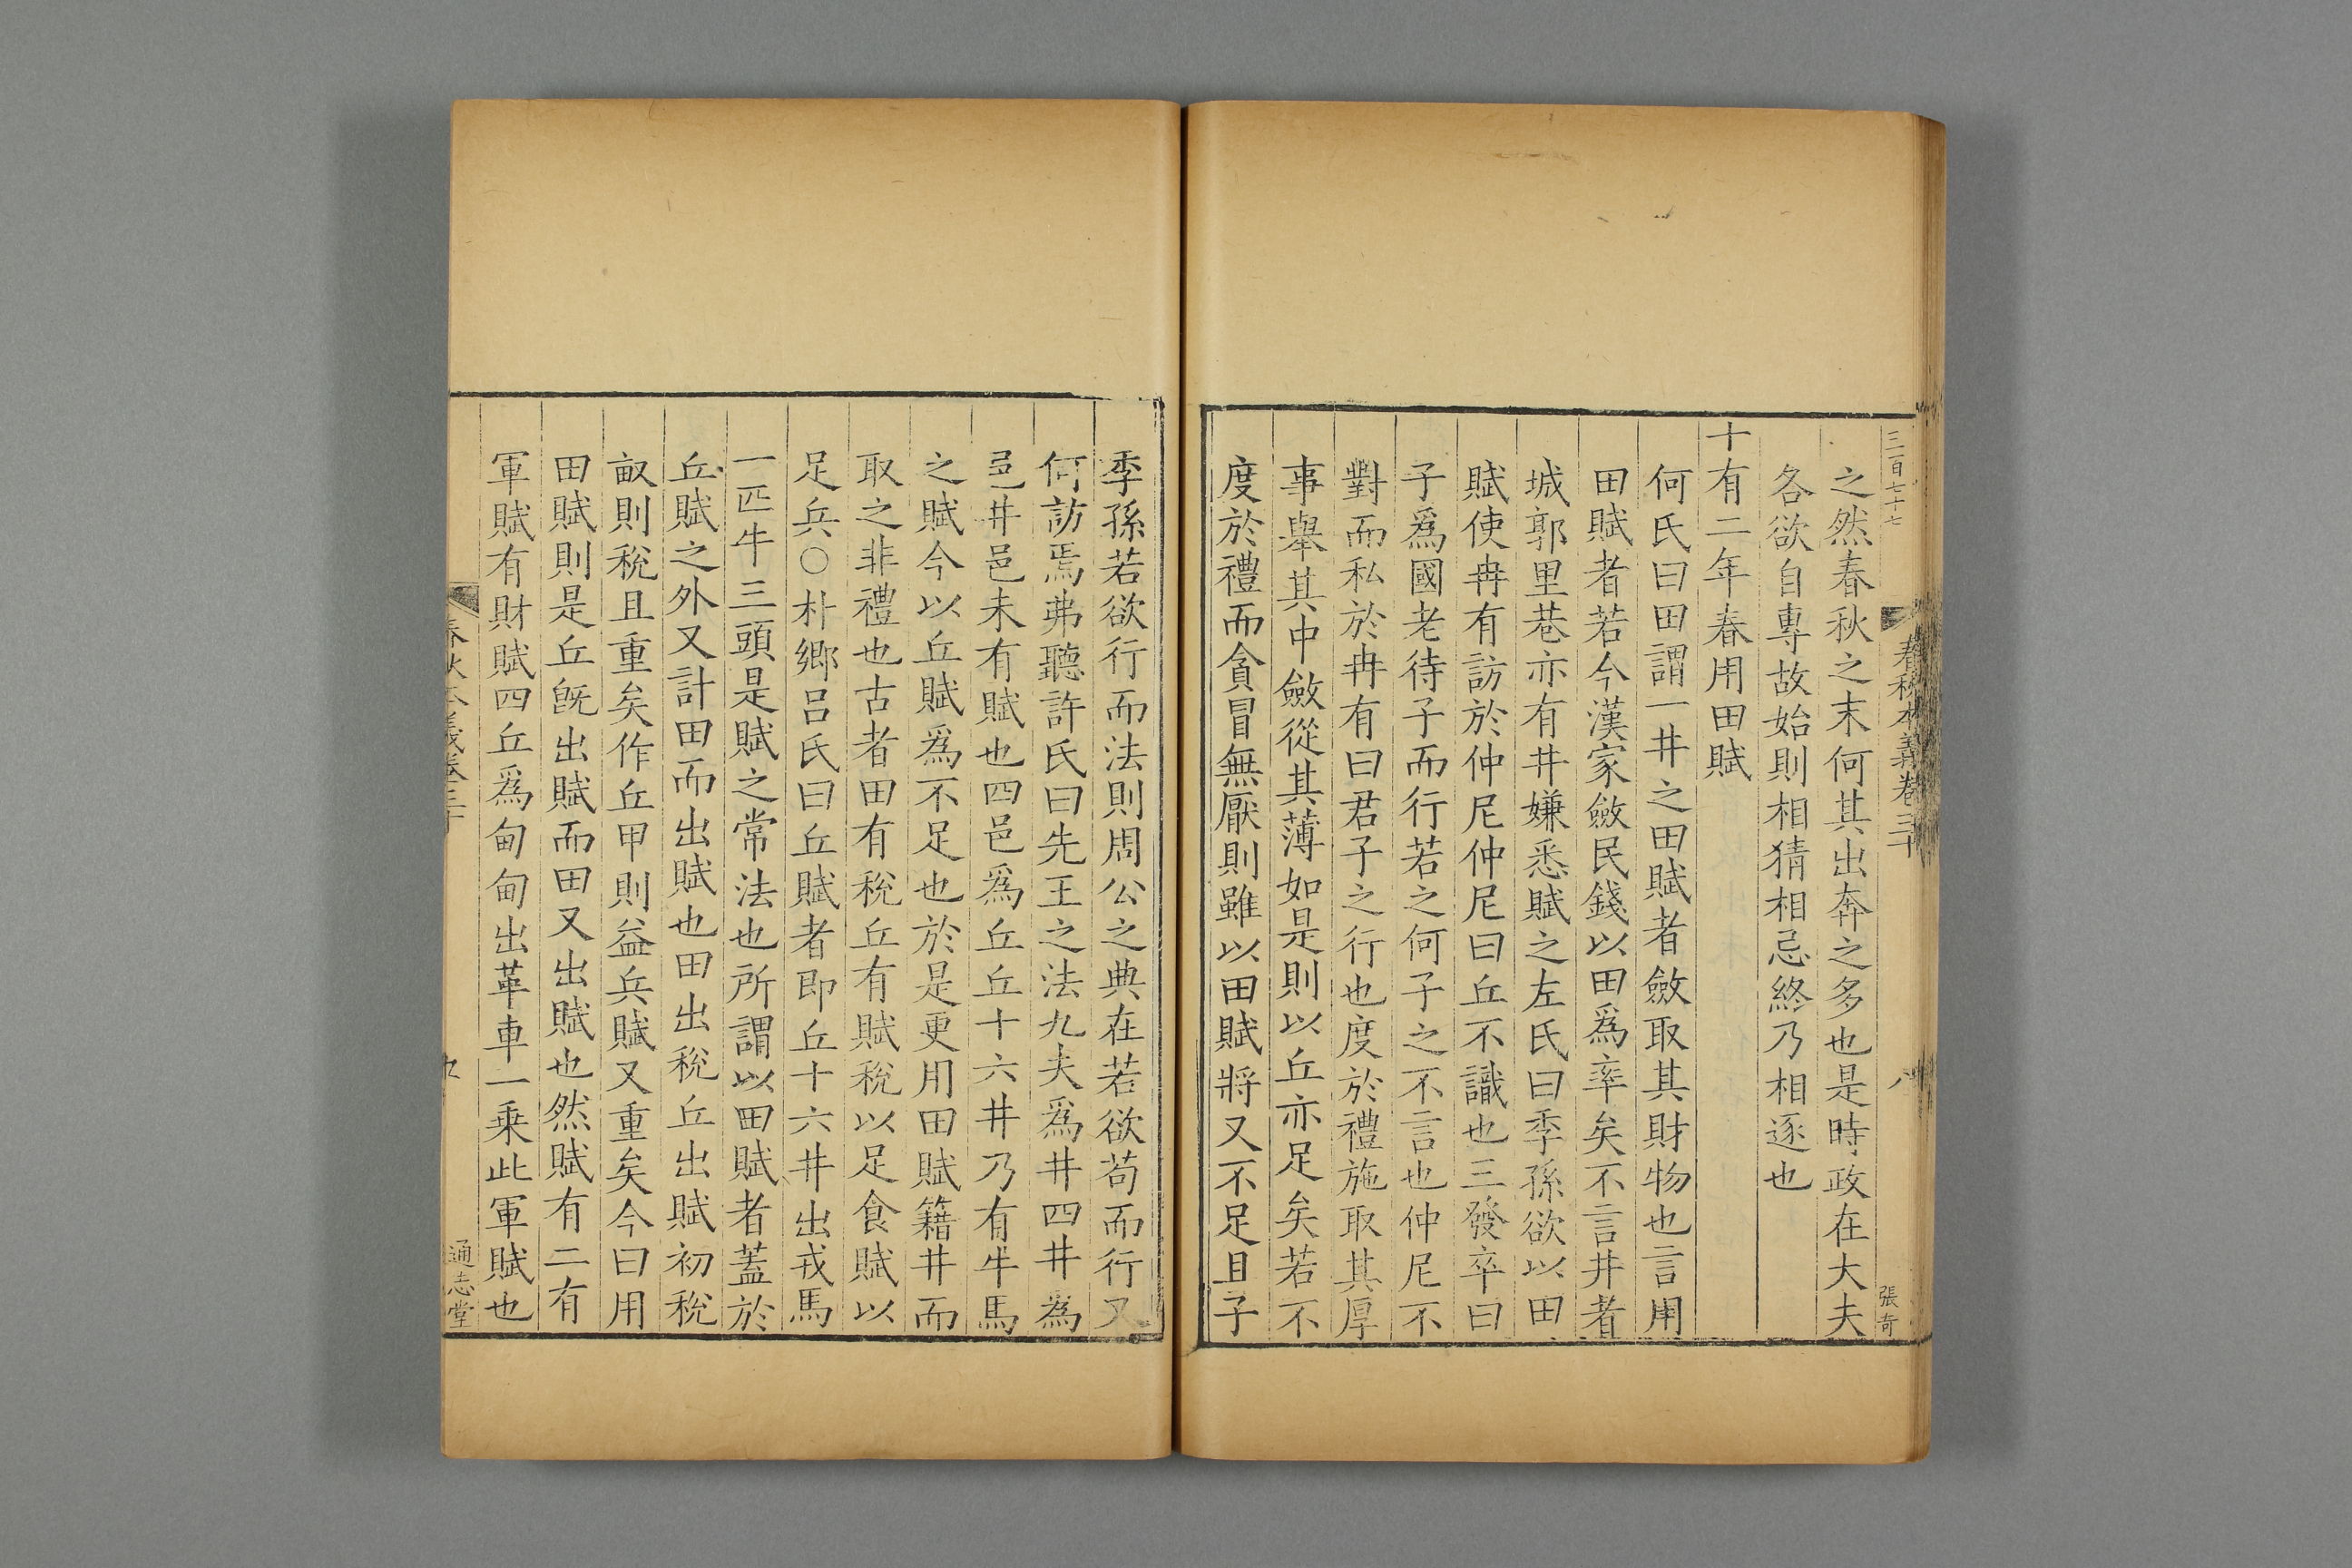 三百七十七 春秋本義卷三十 八 張奇
之然春秋之末何其出奔之多也是時政在大夫
各欲自專故始則相猜相忌終乃相逐也
十有二年春用田賦
何氏曰田謂一井之田賦者斂取其財物也言用
田賦者若今漢家斂民錢以田爲率矣不言井者
城郭里巷亦有井嫌悉賦之左氏曰季孫欲以田
賦使冉有訪於仲尼仲尼曰丘不識也三發卒曰
子爲國老待子而行若之何子之不言也仲尼不
對而私於冉有曰君子之行也度於禮施取其厚
事舉其中斂從其薄如是則以丘亦足矣若不
度於禮而貪冒無厭則雖以田賦將又不足且子
季孫若欲行而法則周公之典在若欲苟而行又
何訪焉弗聽許氏曰先王之法九夫爲井四井爲
邑井邑未有賦也四邑爲丘丘十六井乃有牛馬
之賦今以丘賦爲不足也於是更用田賦籍井而
取之非禮也古者田有稅丘有賦稅以足食賦以
足兵○朴鄉呂氏曰丘賦者即丘十六井出戎馬
一匹牛三頭是賦之常法也所謂以田賦者蓋於
丘賦之外又計田而出賦也田出稅丘出賦初稅
畝則稅且重矣作丘甲則益兵賦又重矣今曰用
田賦則是丘旣出賦而田又出賦也然賦有二有
軍賦有財賦四丘爲甸甸出革車一乗此軍賦也
春秋本義卷三十 九 通志堂